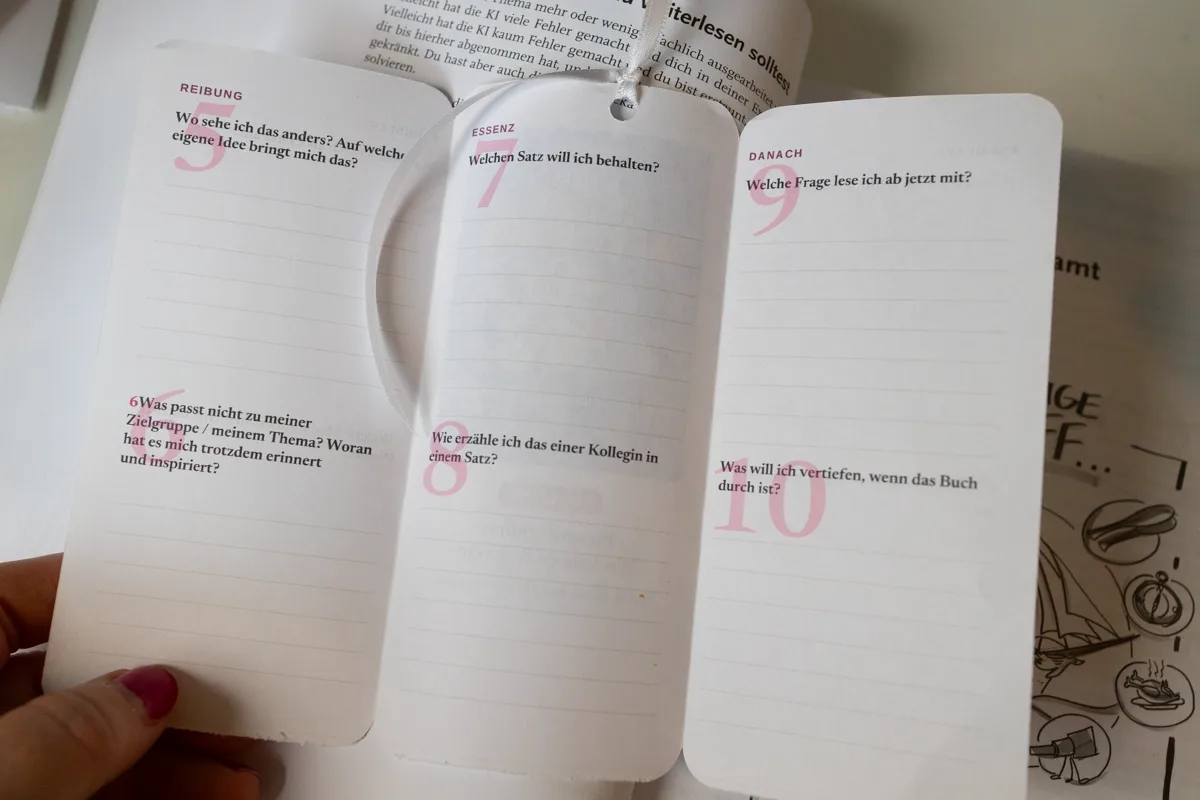 iterlesen solltest
Thema mehr oder wenig achlich ausgearbeitet.
hat die KI viele Fehler gemacht d dich in deiner
Vielleicht hat die KI kaum Fehler gemacht und du bist erstaunt,
dir bis hierher abgenommen hat,
gekränkt. Du hast aber auch
solvieren.
REIBUNG
5
Wo sehe ich das anders? Auf welche
eigene Idee bringt mich das?
6
6Was passt nicht zu meiner
Zielgruppe / meinem Thema? Woran
hat es mich trotzdem erinnert
und inspiriert?
ESSENZ
7
Welchen Satz will ich behalten?
8
Wie erzähle ich das einer Kollegin in
einem Satz?
DANACH
9
Welche Frage lese ich ab jetzt mit?
10
Was will ich vertiefen, wenn das Buch
durch ist?
amt
IGE
FF...